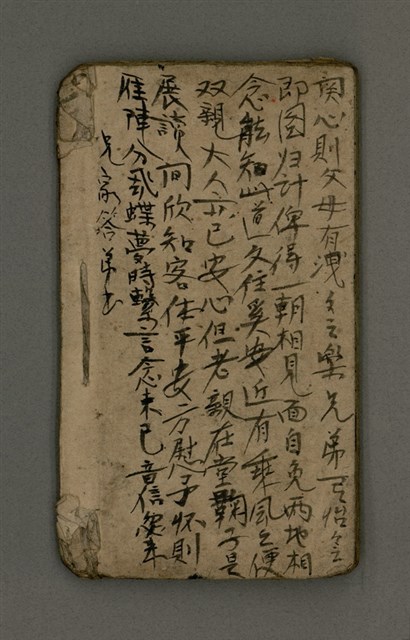 関心則父母有洩之樂兄弟
即图归計俾得一朝相見面自免两地相
念能知此道久往奚安近有乘風之便
双親大人亦已安心但老親在堂鞠子是
展讀間欣知客体平安方慰予怀則
雁陣分飛蝶夢時縈言念未已音信
兄家答弟書